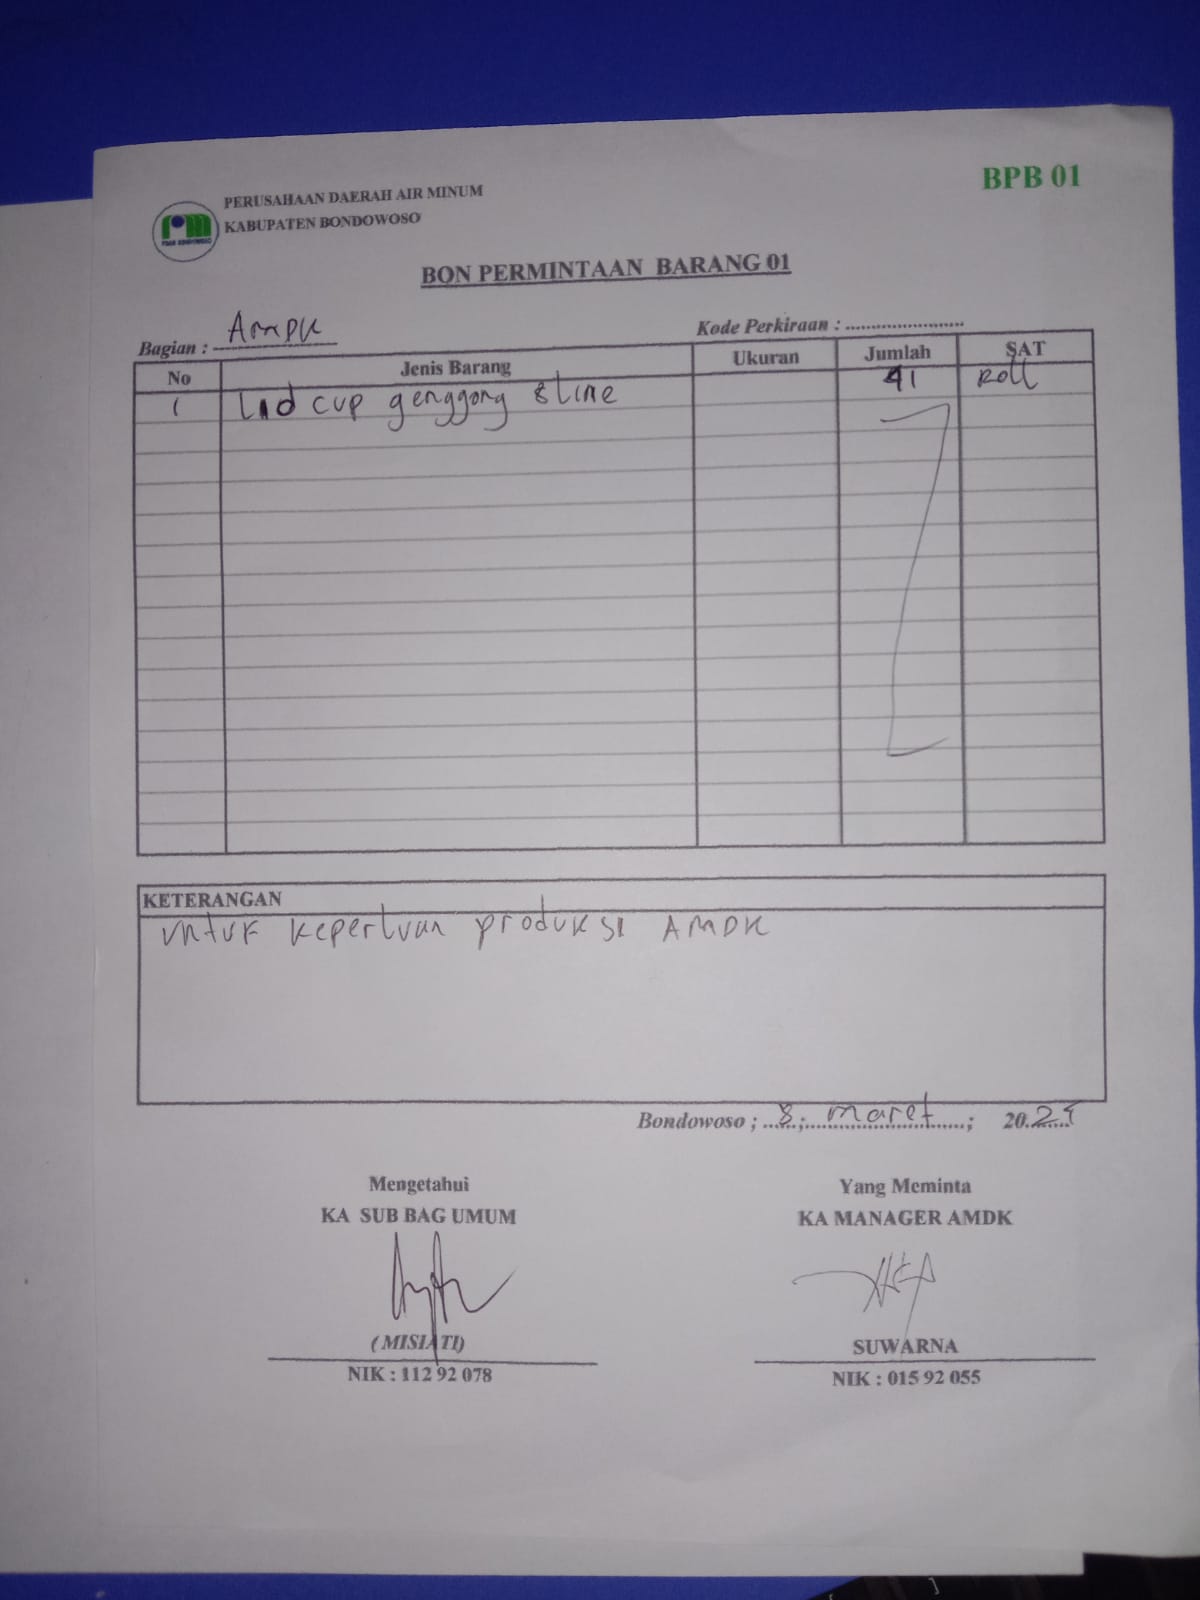 BPB 01
PERUSAHAAN DAERAH AIR MINUM
KABUPATEN BONDOWOSO
BON PERMINTAAN BARANG 01
Bagian : AMDK
Kode Perkiraan : ........................
No Jenis Barang Ukuran Jumlah SAT
1 Lid cup genggong 8 line 41 Roll
KETERANGAN
untuk keperluan produksi AMDK
Bondowoso ; 8 ; maret ; 20
Mengetahui
KA SUB BAG UMUM
(MISIATI)
NIK : 112 92 078
Yang Meminta
KA MANAGER AMDK
SUWARNA
NIK : 015 92 055